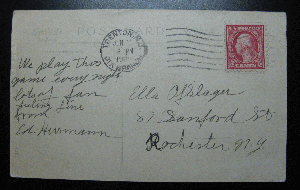 POST CARD
TRENTON, N.J.
We play this
game every night
lots of fun
feeling fine
from
Ed. Herrmann
Ella Oshlager
87 Sanford St
Rochester N.Y